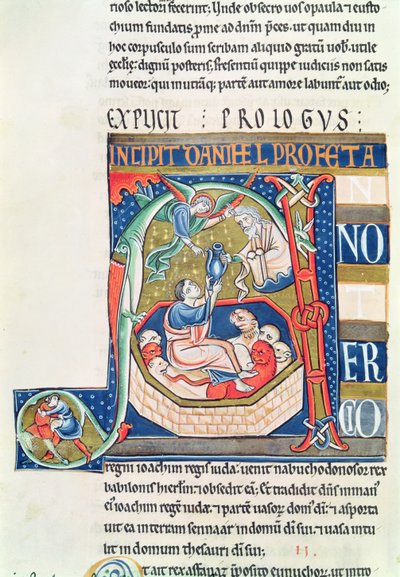 rioso lectori fecerint; Unde obsecro uos o paula & eusto
chium fundatis p me ad dnm pces. ut quam diu in
hoc corpusculo sum scribam aliquid gratū uob. utile
ecctię: dignum posteris. psentium quippe iudiciis non satis
moueor: qui in utraq; partē aut amore labunt aut odio;
EXPLICIT : PROLOGVS :
INCIPIT DANIHEL PROFETA
AN
NO
T
ER
CIO
regni ioachim regis iuda: uenit nabuchodonosor rex
babilonis hierlm & obsedit eā; Et tradidit dns in man
ei ioachim regē iudę: & partē uasor dom di: & asporta
uit ea in terram sennaar in domū di sui: & uasa intu
lit in domum thesauri di sui;